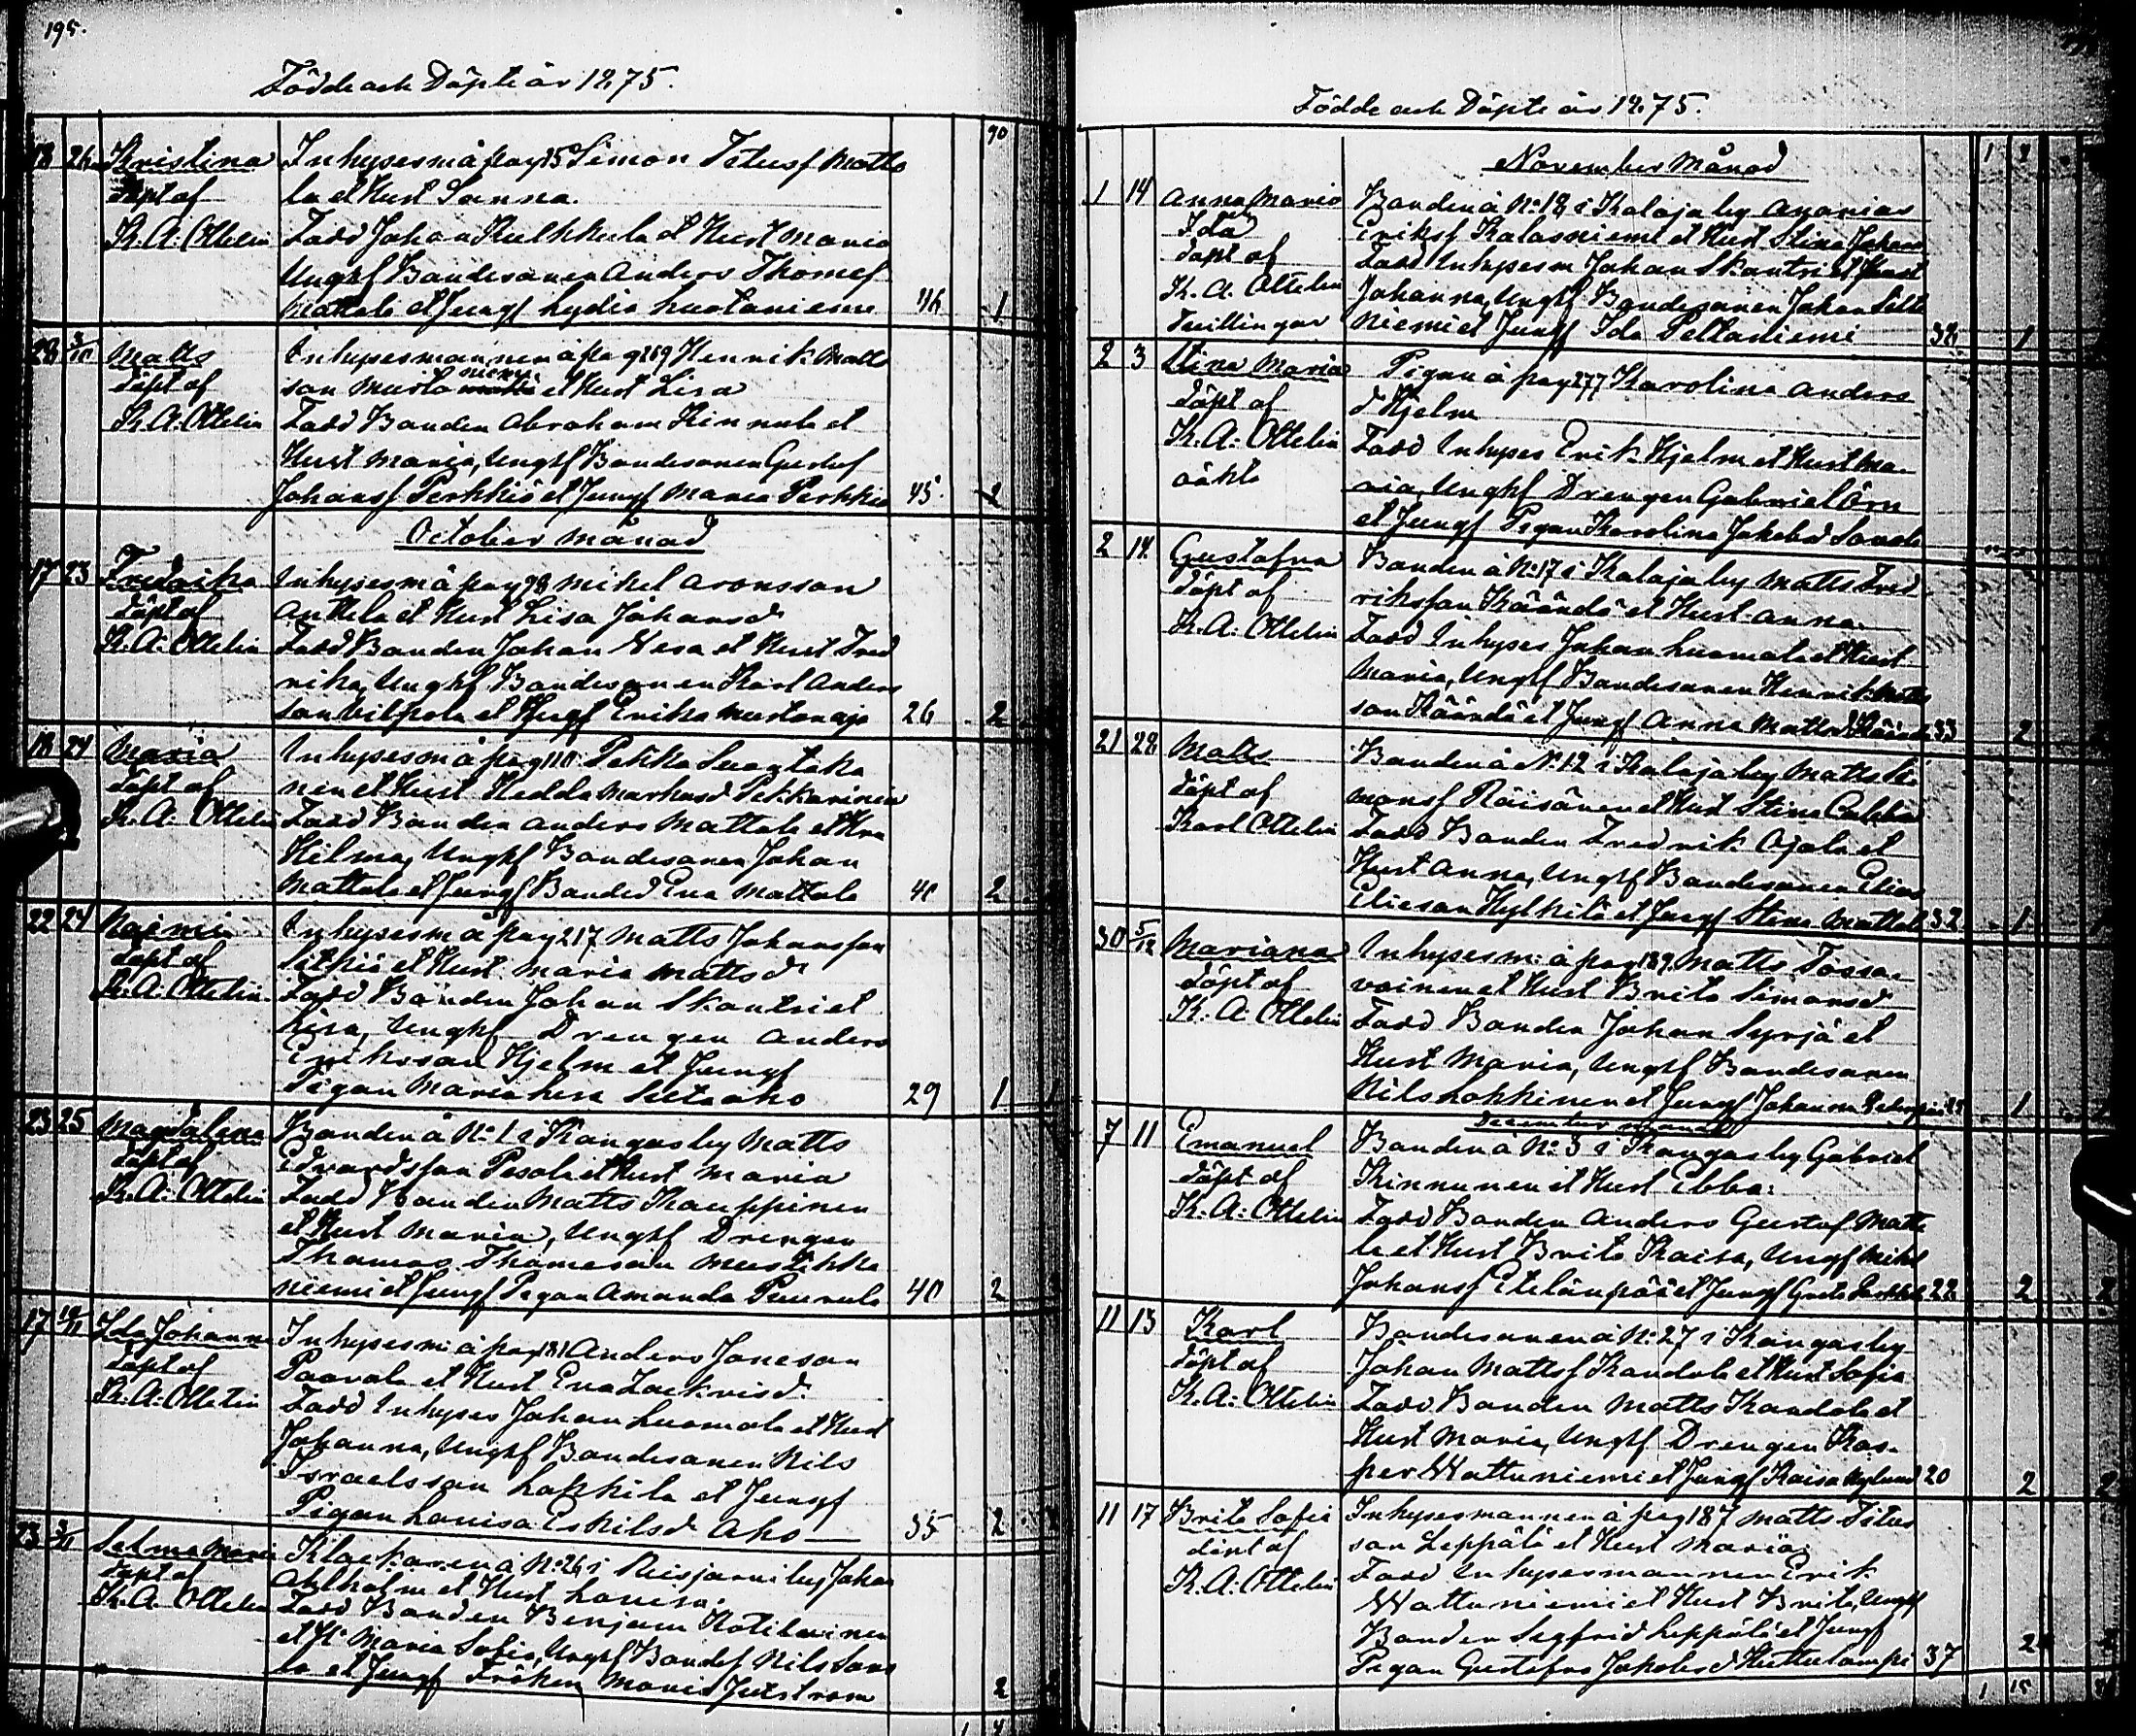 195.
Födde och Döpte år 1875.
90
18 26 Kristina Inhysesm å pag 250 Simon Titusf Matta
döpt af la et Hust Sanna.
K. A. Ottelin Fadd Johan Kulkkula et Hust Maria
Ungkf Bondesonen Anders Thomef
Mattala et Jungf Lydia Luotoniemi 46 1
28 3/10 Matts Inhysesmannen å pag 269 Henrik Matts
döpt af son Musto niemi et Hust Lisa
K. A. Ottelin Fadd Bonden Abraham Kinnula et
Hust Maria, Ungkf Bondesonen Gustaf
Johansf Perkkiö et Jungf Maria Perkkiö 45 2
October månad
17 23 Fredrika Inhysesm å pag 98 Mikel Aronsson
döpt af Anttila et Hust Lisa Johansd
K. A. Ottelin Fadd Bonden Johan Vesa et Hust Fred
rika, Ungkf Bondesonen Karl Anders
son Vilpola et Jungf Erika Mustonoja 26 2
18 24 Maria Inhysesm å pag 110 Pekka
döpt af nen et Hust Hedda Markusd Pekkarinen
K. A. Ottelin Fadd Bonden Anders Mattala et Hu
Hilma, Ungkf Bondesonen Johan
Mattala et Jungf Bonded Eva Mattala 40 2
22 24 Naimi Inhysesm å pag 217 Matts Johansson
döpt af et Hust Maria Mattsd
K. A. Ottelin Fadd Bonden Johan Skantsi et
Lisa, Ungkf Drengen Anders
Eriksson Hjelm et Jungf
Pigan Maria Lisa 29 1
23 25 Magdalena Bonden å No 1 i Kangas by Matts
döpt af Edvardsson Pesola et Hust Maria
K. A. Ottelin Fadd Bonden Matts Kauppinen
et Hust Maria, Ungkf Drengen
Thomas Thomeson Mustikka
niemi et Jungf Pigan Amanda Puurula 40 2
17 12/11 Ida Johanna Inhysesm: å pag 181 Anders Joneson
döpt af Paavola et Hust Eva Zackrisd.
K. A. Ottelin Fadd Inhyses Johan Luomala et Hust
Johanna, Ungkf Bondesonen Nils
Israelsson Lakkila et Jungf
Pigan Lovisa Eskilsd Aho 35 2
23 3/11 Selma Maria Klockaren å No 26 i Reisjärvi by Johan
döpt af Ahlholm et Hust Lovisa.
K. A. Ottelin Fadd Bonden Benjam Kotilainen
et H: Maria Sofia, Ungkf Bondef Nils
la et Jungf Fröken Maria 2
Födde och Döpte år 1875.
November Månad
1 14 Anna Maria Bonden å No 18 i Kalaja by Ananias
Ida Eriksf Kalasniemi et Hust Stina Johans
döpt af Fadd Inhysesm Johan Skantsi et Hust
K. A. Ottelin Johanna, Ungkf Bondesonen Johan Pelto
Tvillingar niemi et Jungf Ida Peltoniemi 32 1
2 3 Stina Maria Pigan å pag 277 Karolina Anders
döpt af d Hjelm
K. A. Ottelin Fadd Inhyses Erik Hjelm et Hust Ma
oäkta ria, Ungkf Drengen Gabriel Örn
et Jungf Pigan Karolina Jakobsd
2 14 Gustafva Bonden å No 17 i Kalaja by Matts Fred
döpt af riksson Kääntä et Hust Anna
K. A. Ottelin Fadd Inhyses Johan Luomala et Hust
Maria, Ungkf Bondesonen Henrik Matts
son Kääntä et Jungf Anna Mattsd Kääntä 33 2
21 28 Matts Bonden å No 12 i Kalaja by Matts Si
döpt af monsf Räisänen et Hust Stina
Karl Ottelin Fadd Bonden Fredrik Ojala et
Hust Anna, Ungkf Bondesonen Elias
Elieson Hylkilä et Jungf Stina Mattala 32 1
30 5/12 Mariana Inhysesm: å pag 189 Matts Tossa
döpt af vainen et Hust Brita Simonsd
K. A. Ottelin Fadd Bonden Johan Syrjä et
Hust Maria, Ungkf Bondesonen
Nils Lokkinen et Jungf Johanna 1
December månad
7 11 Emanuel Bonden å No 3 i Kangas by Gabriel
döpt af Kinnunen et Hust Ebba:
K. A. Ottelin Fadd Bonden Anders Gustaf Matta
la et Hust Brita Kaisa, Ungf Mikel
Johansf Etelänpää et Jungf Greta 22 2
11 13 Karl Bondesonen å No 27 i Kangas by
döpt af Johan Mattsf Kandola et Hust Sofia
K. A. Ottelin Fadd Bonden Matts Kandola et
Hust Maria, Ungkf Drengen Kas
per Wattuniemi et Jungf Kaisa Nylund 20 2
11 17 Brita Sofia Inhysesmannen å pag 187 Matts Titus
döpt af son Leppälä et Hust Maria
K. A. Ottelin Fadd Inhysesmannen Erik
Wattuniemi et Hust Brita, Ungkf
Bonden Segfrid Leppälä et Jungf
Pigan Gustafva Jakobsd Huttulampi 37 2
1 15